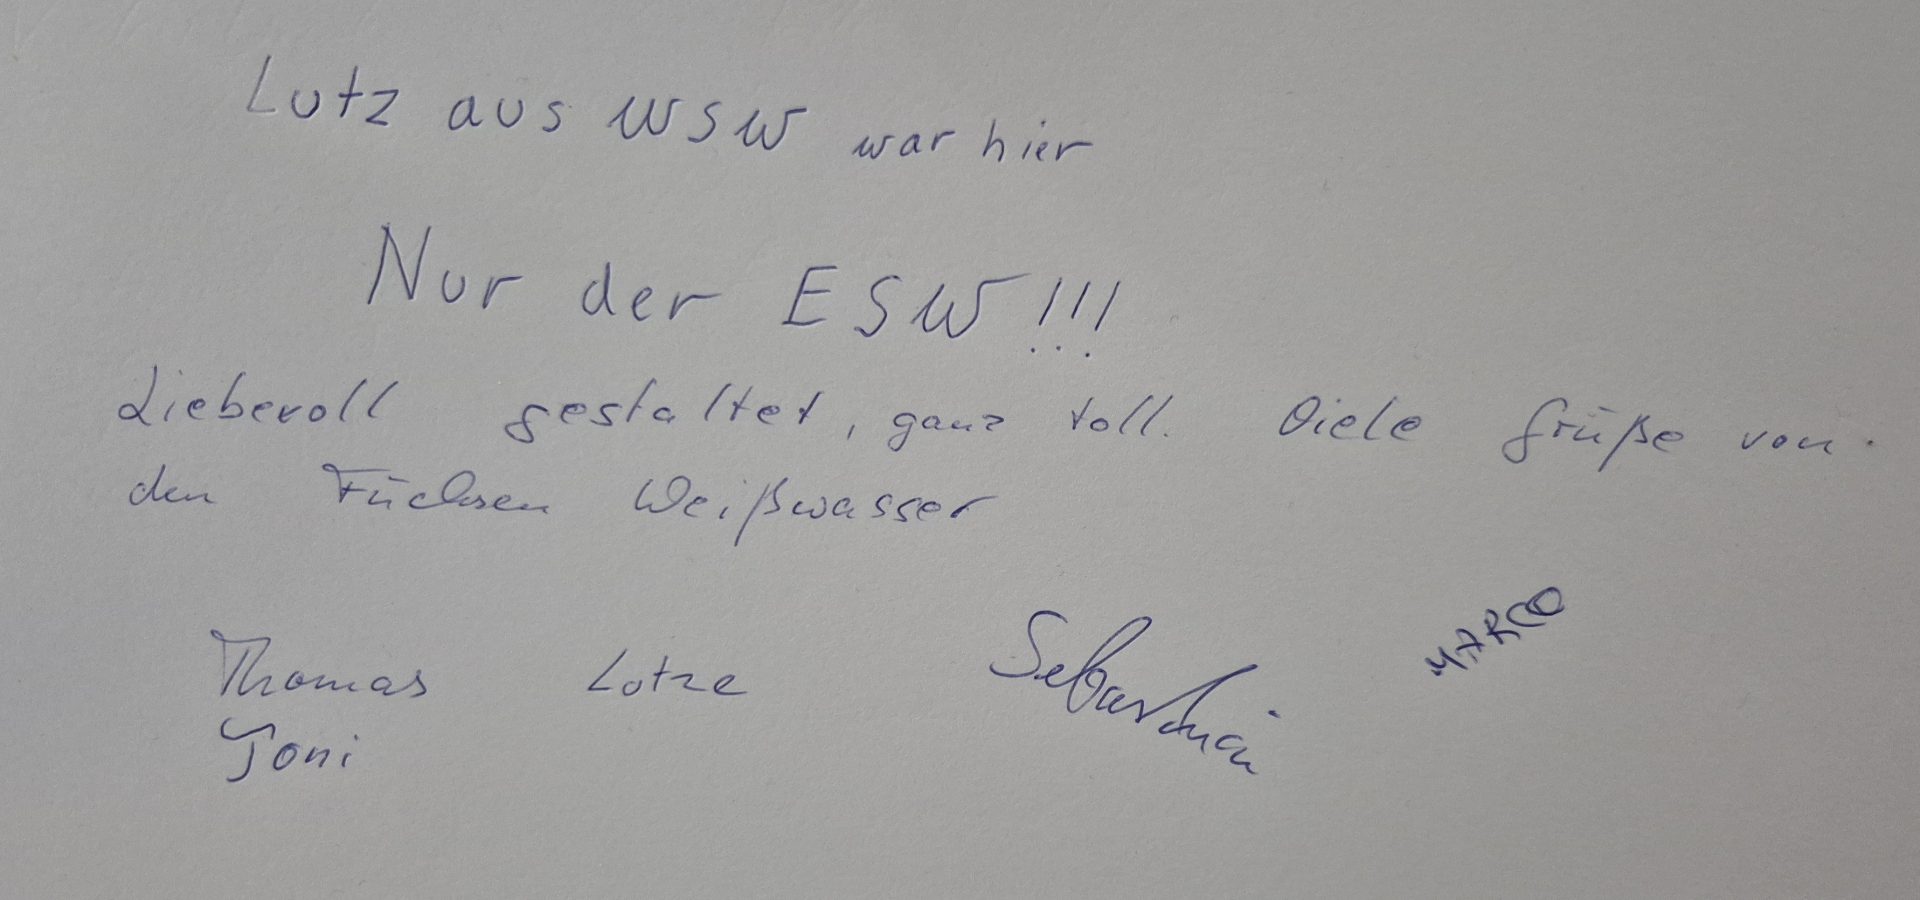 Lutz aus WSW war hier
Nur der ESW!!!
Liebevoll gestaltet, ganz toll. Viele Grüße von
den Füchsen Weißwasser
Thomas Lotze Sebastian MARCO
Toni